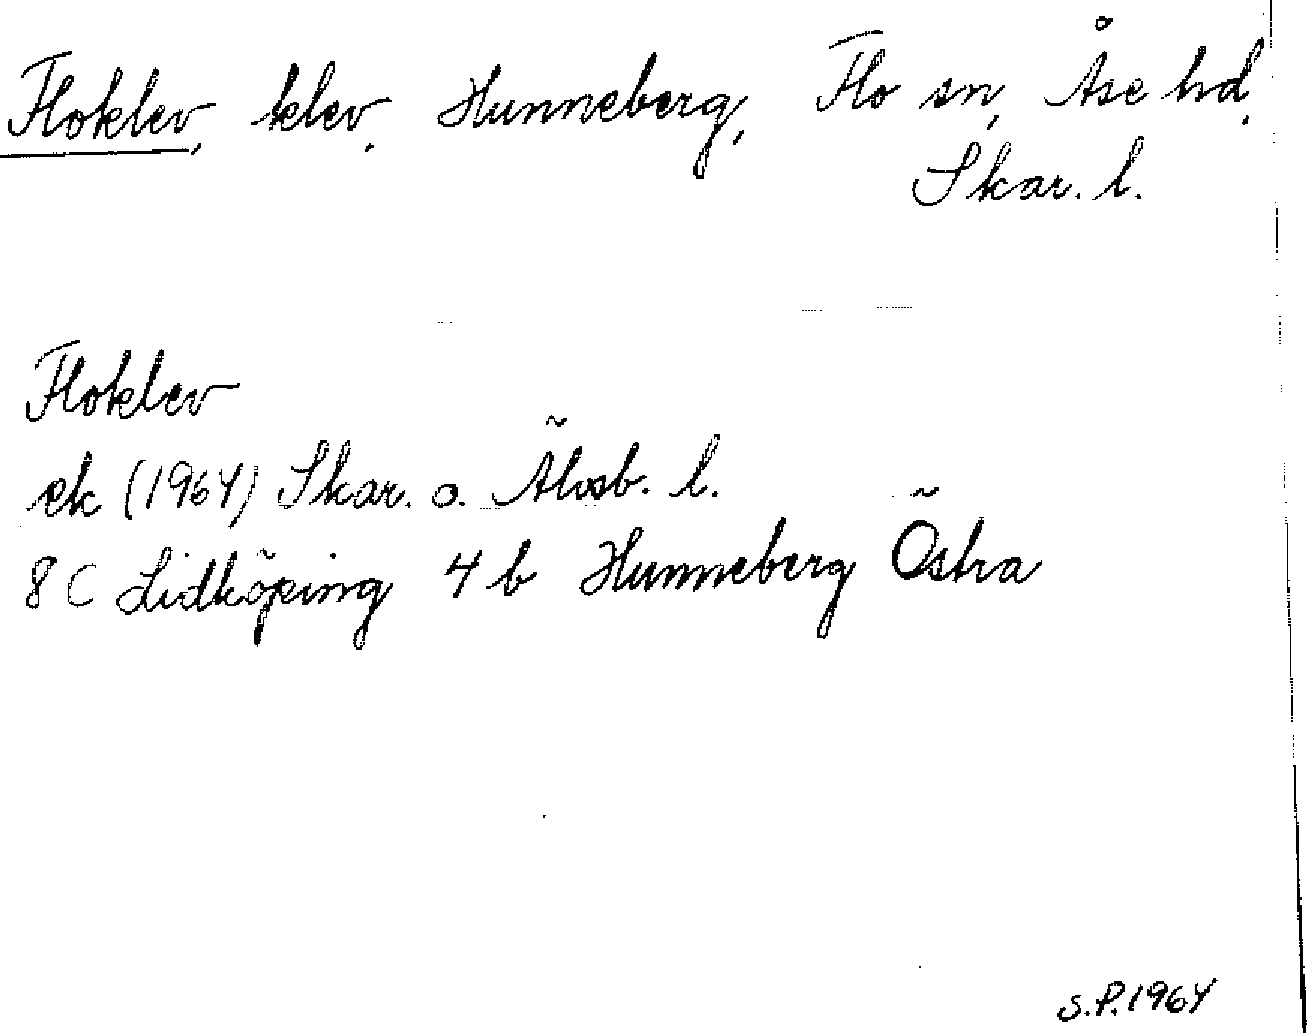 Floklev, klev, Hunneberg, Flo sn, Åse hd,
Skar. l.
Floklev
ek (1964) Skar. o. Älvsb. l.
8 C Lidköping 4 b Hunneberg Östra
S.P. 1964